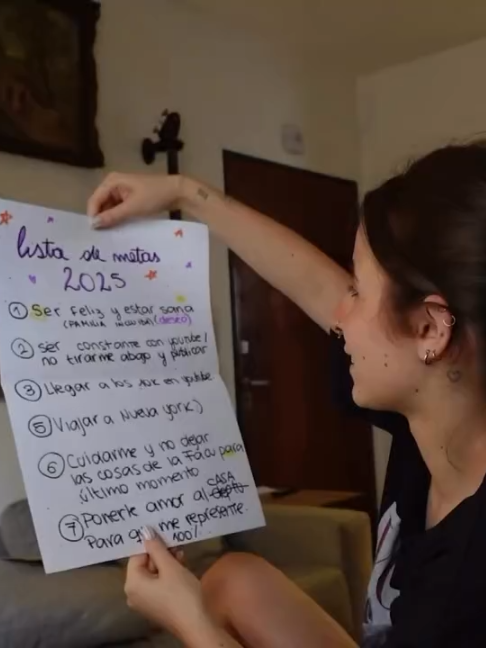 lista de metas
2025
① Ser feliz y estar sana
(FAMILIA INCLUIDA) (deseo)
② ser constante con youtube/
no tirarme abajo y publicar
③ Llegar a los en youtube
⑤ Viajar a Nueva york)
⑥ Cuidarme y no dejar
las cosas de la Facu para
último momento
CASA
⑦ Ponerle amor al depto
Para que me represente.
100%